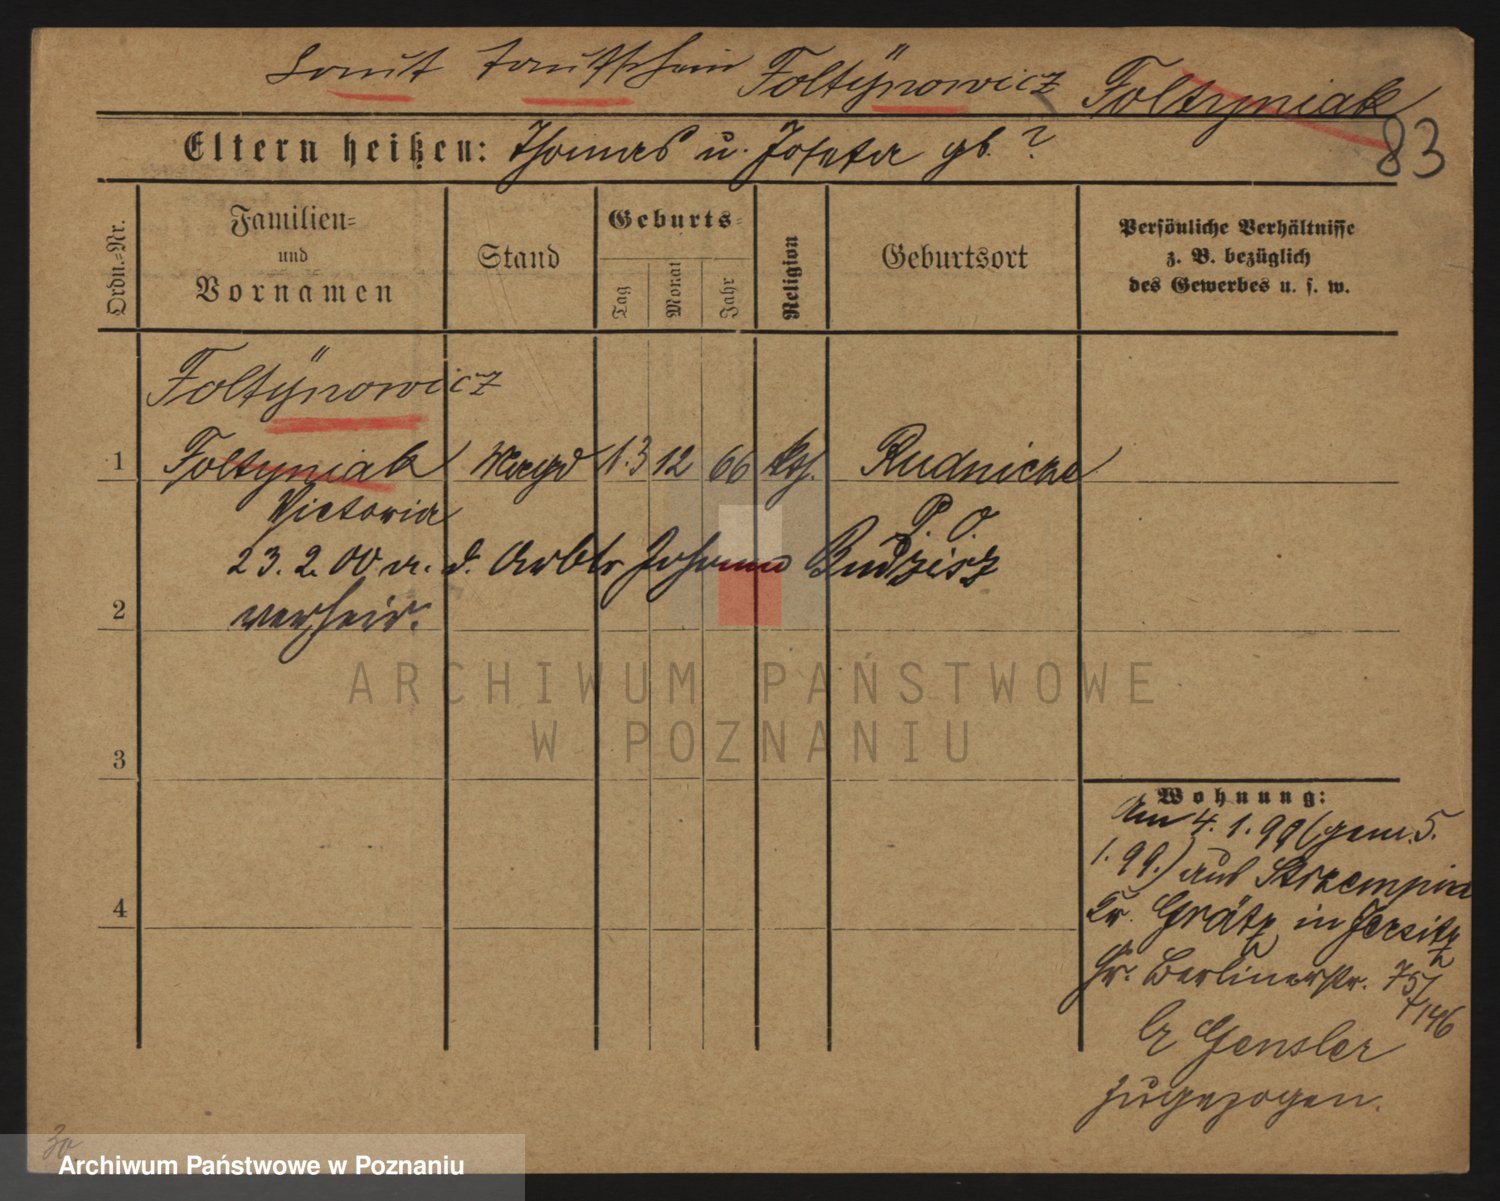 Laut Taufschein Foltÿnowicz Foltyniak
83
Eltern heißen: Thomas u. Josefa gb. ?
Ordn.-Nr.
Familien-
und
Vornamen
Stand
Geburts-
Tag
Monat
Jahr
Religion
Geburtsort
Persönliche Verhältnisse
z. B. bezüglich
des Gewerbes u. s. w.
Foltÿnowicz
1 Foltyniak Magd 13 12 66 kth. Rudnicki
Victoria P. O.
23. 2. 00 a. d. Arbtr Johann Budzisz
2 verheir.
ARCHIWUM PAŃSTWOWE
W POZNANIU
3
4
Wohnung:
Am 4. 1. 99 (gem. 5.
1. 99.) aus Strzempin
Kr. Grätz in Jersitz
Gr. Berlinerstr. 75/
146
b/ Gensler
zugezogen.
Archiwum Państwowe w Poznaniu